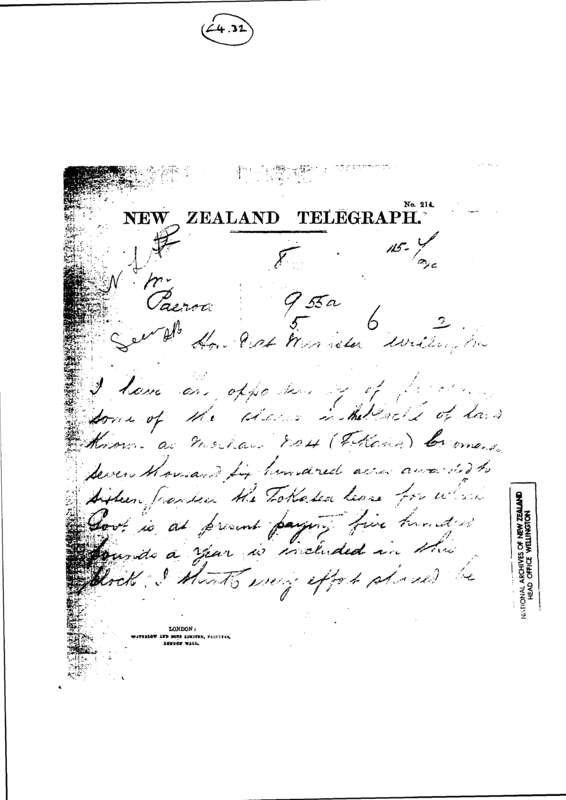 C4.32
No. 214.
NEW ZEALAND TELEGRAPH.
8
Paeroa 9 55a
5 6 2
Hon Minister
I have an of
some of the in the of land
Known as (Tokatea)
seven thousand six hundred acres awarded to
sixteen the Tokatea lease for which
Govt is at present paying five hundred
pounds a year is included in this
block I think every effort should be
LONDON:
WATERLOW AND SONS LIMITED, PRINTERS,
LONDON WALL.
NATIONAL ARCHIVES OF NEW ZEALAND
HEAD OFFICE WELLINGTON